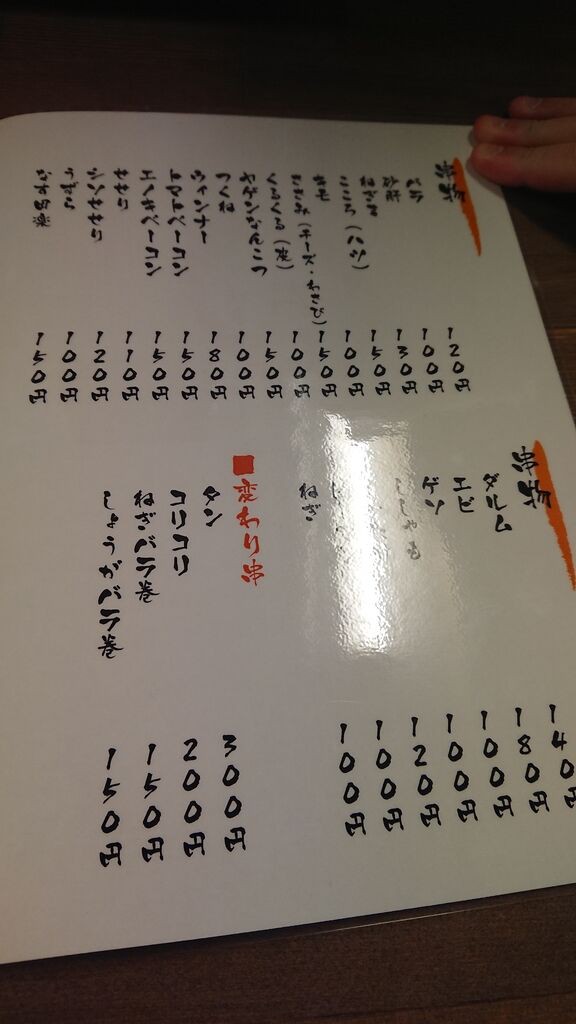 串物
バラ 120円
砂肝 100円
ねぎま 130円
こころ（ハツ） 150円
キモ 100円
ささみ（チーズ・わさび） 150円
くるくる（皮） 100円
ヤゲンなんこつ 150円
つくね 100円
ウィンナー 180円
トマトベーコン 150円
エノキベーコン 150円
せせり 110円
シソせせり 120円
うずら 100円
なす田楽 150円
串物
ダルム 140円
エビ 180円
ゲソ 100円
ししゃも 100円
120円
100円
ねぎ 100円
■変わり串
タン 300円
コリコリ 200円
ねぎバラ巻 150円
しょうがバラ巻 150円